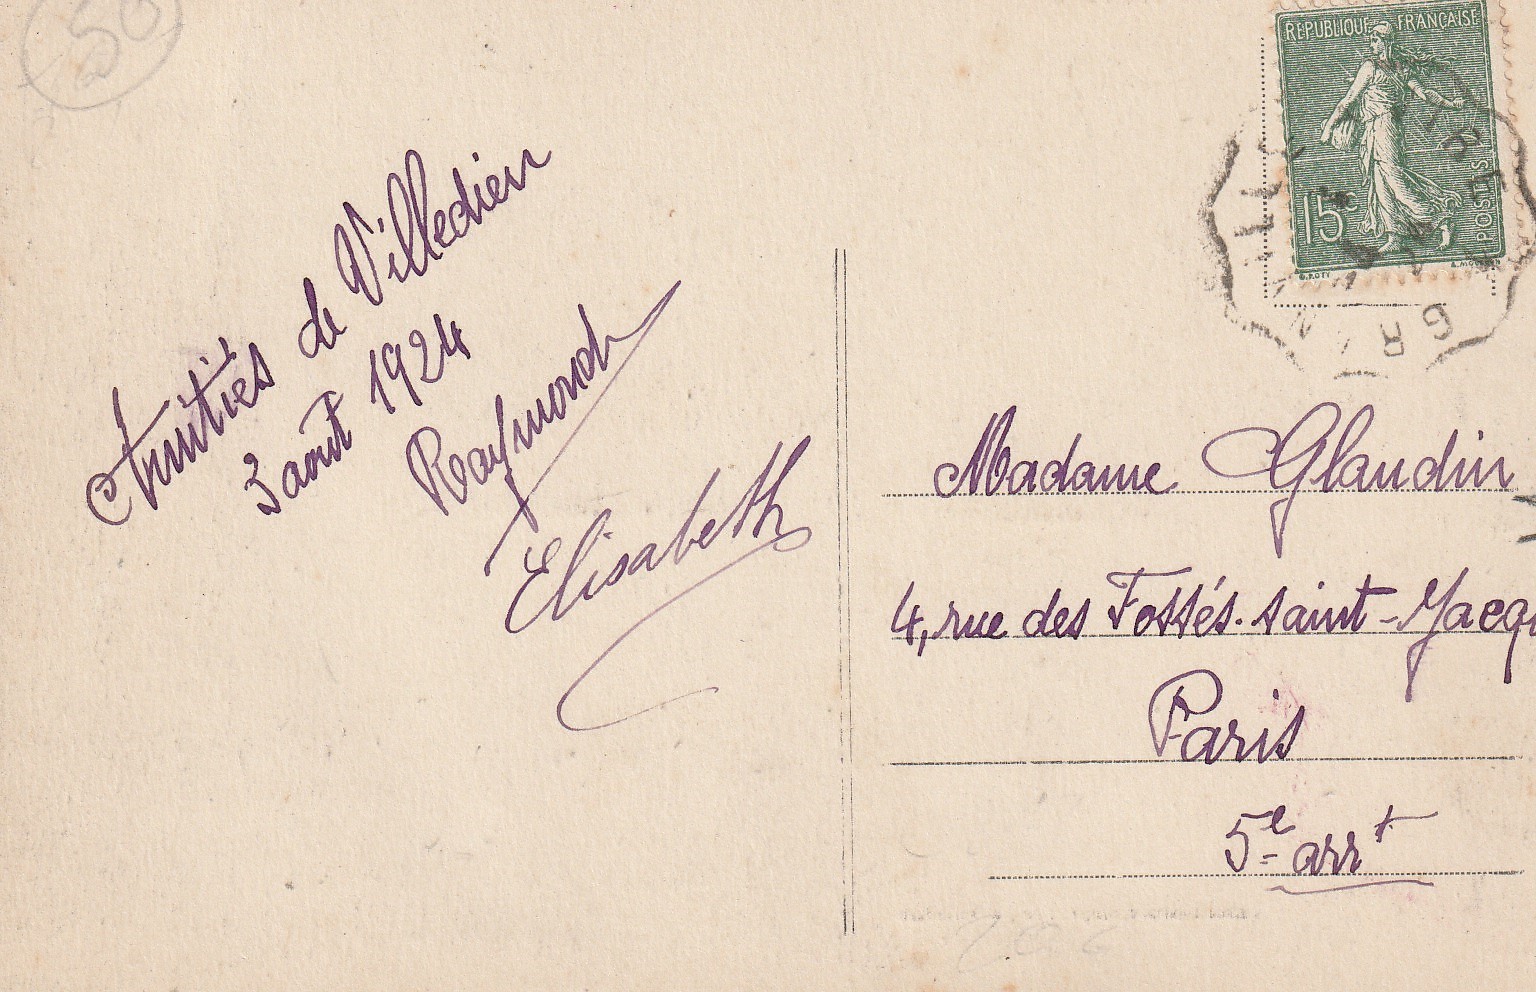 50
Amitiés de Villedieu
3 août 1924
Raymond
Elisabeth
RÉPUBLIQUE FRANÇAISE
15c
POSTES
O. ROTY
Madame Glaudin
4, rue des Fossés-saint-Jacq
Paris
5e arrt